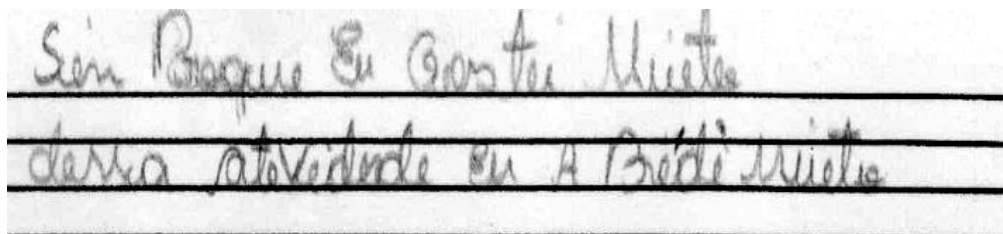 Sien Poque Eu Gostei Muieto
dessa atevidade eu A Prédi Muieto